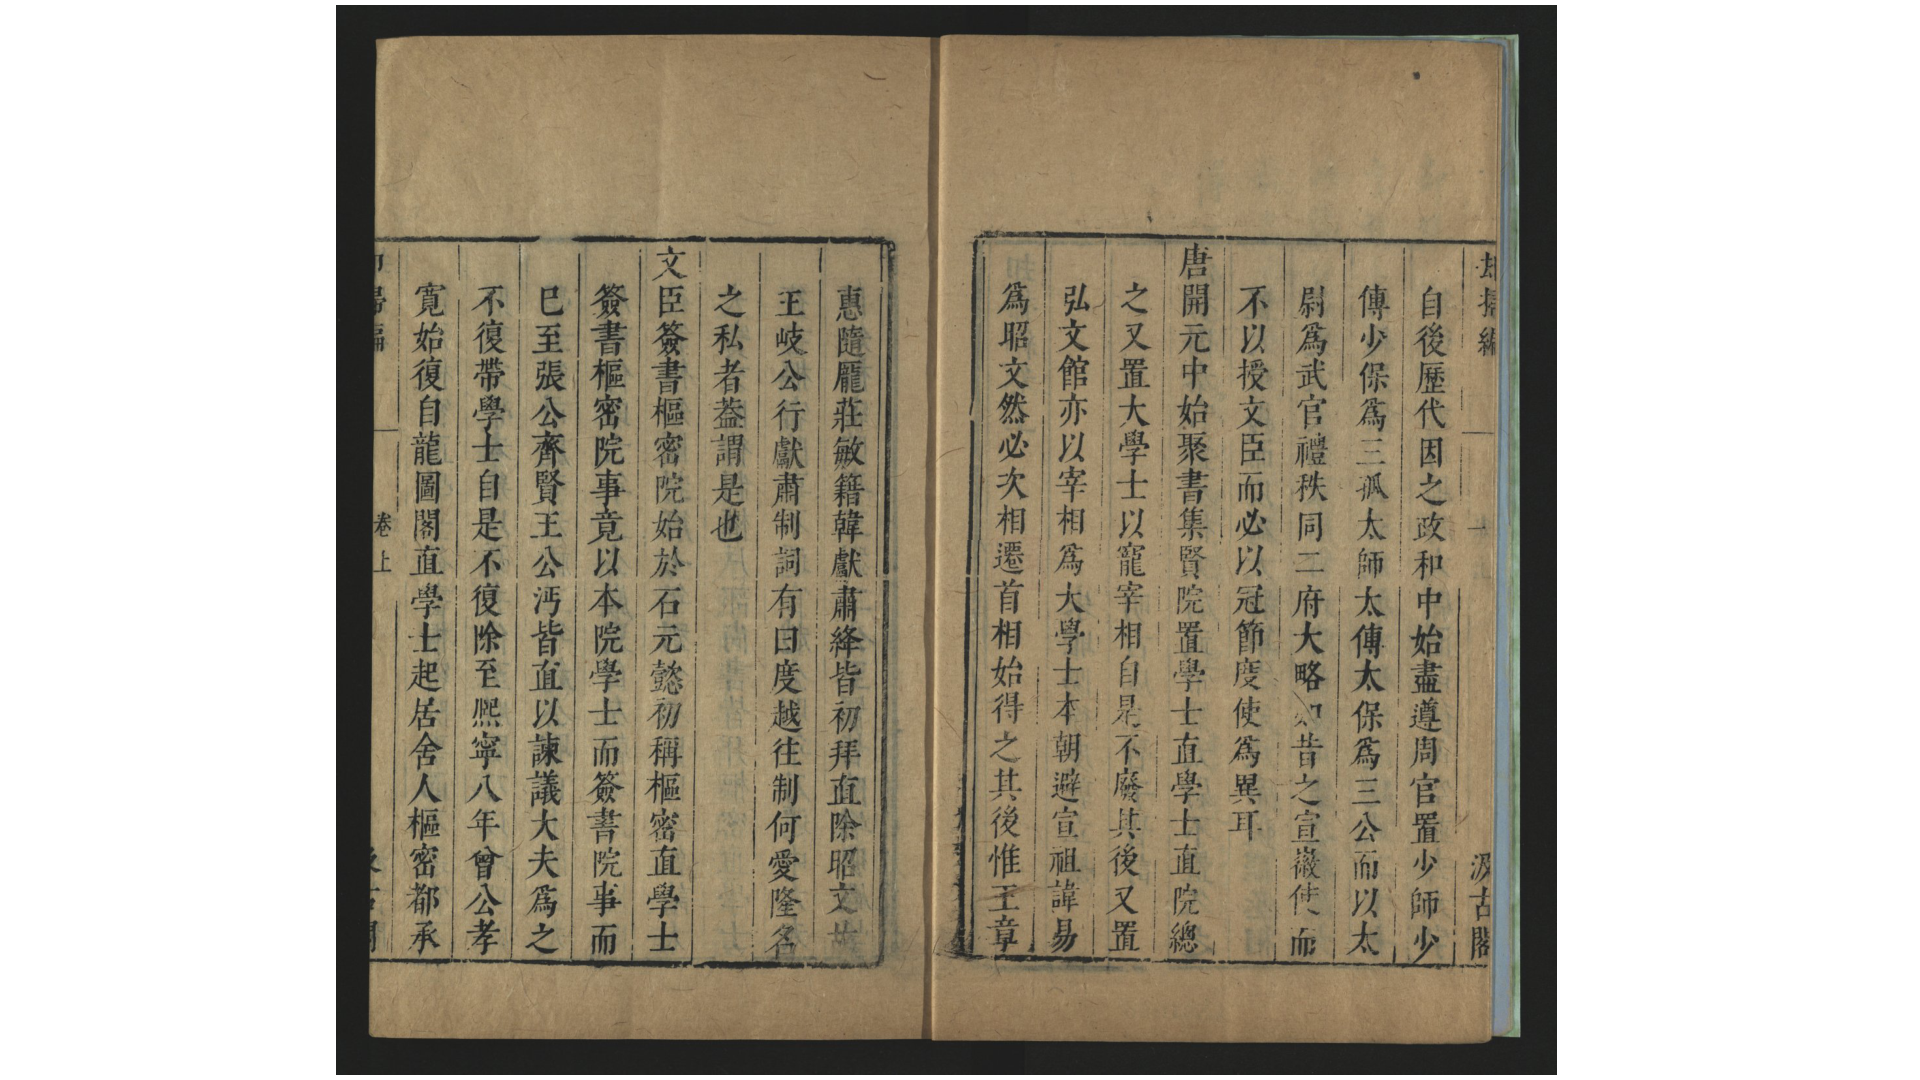 却掃編
汲古閣
自後歷代因之政和中始盡遵周官置少師少
傅少保為三孤太師太傅太保為三公而以太
尉為武官禮秩同二府大略如昔之宣徽使而
不以授文臣而必以冠節度使為異耳
唐開元中始聚書集賢院置學士直學士直院總
之又置大學士以寵宰相自是不廢其後又置
弘文館亦以宰相為大學士本朝避宣祖諱易
為昭文然必次相遷首相始得之其後惟王章
惠隨龐莊敏籍韓獻肅絳皆初拜直除昭文故
王岐公行獻肅制詞有曰度越往制何愛隆名
之私者蓋謂是也
文臣簽書樞密院始於石元懿初稱樞密直學士
簽書樞密院事竟以本院學士而簽書院事而
已至張公齊賢王公沔皆直以諫議大夫為之
不復帶學士自是不復除至熙寧八年曾公孝
寬始復自龍圖閣直學士起居舍人樞密都承
卷上